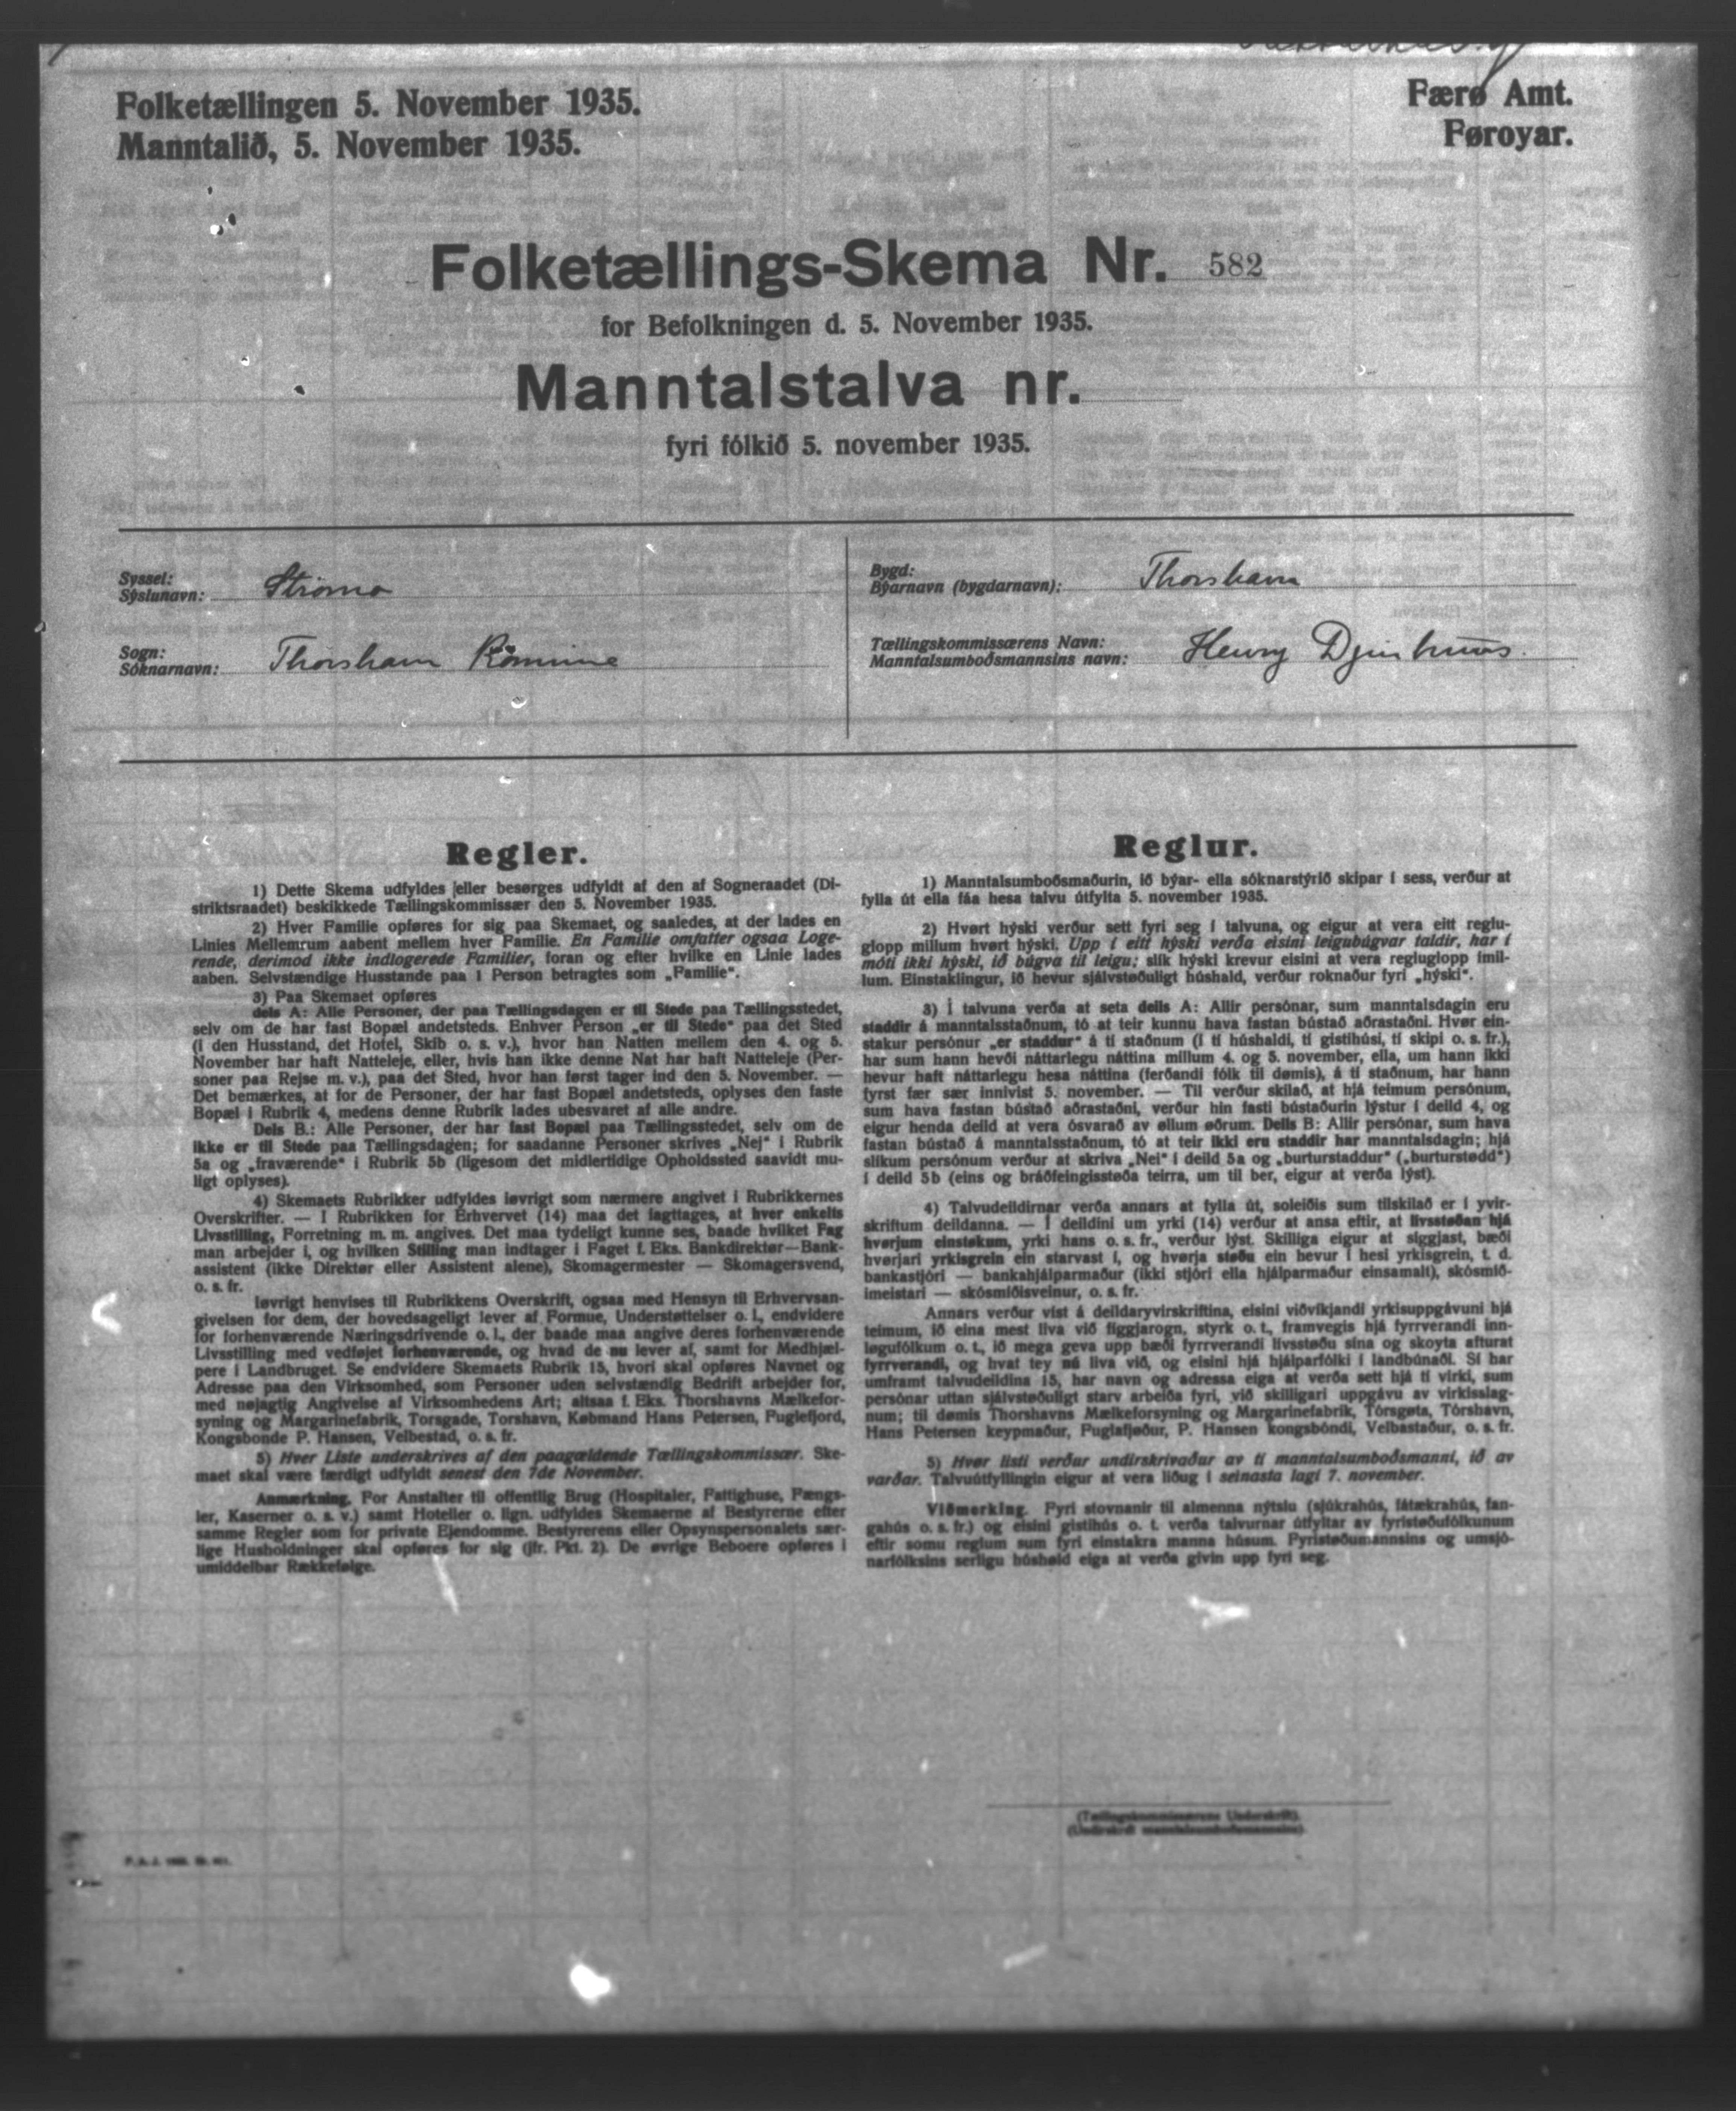 Folketællingen 5. November 1935.
Manntalið, 5. November 1935.
Færø Amt.
Føroyar.
Folketællings-Skema Nr. 582
for Befolkningen d. 5. November 1935.
Manntalstalva nr.
fyri fólkið 5. november 1935.
Syssel:
Sýslunavn: Strømø
Sogn:
Sóknarnavn: Thorshavn Kømune
Bygd:
Býarnavn (bygdarnavn): Thorshavn
Tællingskommissærens Navn:
Manntalsumboðsmannsins navn: Henry Djurhuus.
Regler.
1) Dette Skema udfyldes eller besørges udfyldt af den af Sogneraadet (Di-
striktsraadet) beskikkede Tællingskommissær den 5. November 1935.
2) Hver Familie opføres for sig paa Skemaet, og saaledes, at der lades en
Linies Mellemrum aabent mellem hver Familie. En Familie omfatter ogsaa Loge-
rende, derimod ikke indlogerede Familier, foran og efter hvilke en Linie lades
aaben. Selvstændige Husstande paa 1 Person betragtes som „Familie“.
3) Paa Skemaet opføres
dels A: Alle Personer, der paa Tællingsdagen er til Stede paa Tællingsstedet,
selv om de har fast Bopæl andetsteds. Enhver Person „er til Stede“ paa det Sted
(i den Husstand, det Hotel, Skib o. s. v.), hvor han Natten mellem den 4. og 5.
November har haft Natteleje, eller, hvis han ikke denne Nat har haft Natteleje (Per-
soner paa Rejse m. v.), paa det Sted, hvor han først tager ind den 5. November. —
Det bemærkes, at for de Personer, der har fast Bopæl andetsteds, oplyses den faste
Bopæl i Rubrik 4, medens denne Rubrik lades ubesvaret af alle andre.
Dels B.: Alle Personer, der har fast Bopæl paa Tællingsstedet, selv om de
ikke er til Stede paa Tællingsdagen; for saadanne Personer skrives „Nej“ i Rubrik
5a og „fraværende“ i Rubrik 5b (ligesom det midlertidige Opholdssted saavidt mu-
ligt oplyses).
4) Skemaets Rubrikker udfyldes iøvrigt som nærmere angivet i Rubrikkernes
Overskrifter. — I Rubrikken for Erhvervet (14) maa det iagttages, at hver enkelts
Livsstilling, Forretning m. m. angives. Det maa tydeligt kunne ses, baade hvilket Fag
man arbejder i, og hvilken Stilling man indtager i Faget f. Eks. Bankdirektør—Bank-
assistent (ikke Direktør eller Assistent alene), Skomagermester — Skomagersvend,
o. s. fr.
Iøvrigt henvises til Rubrikkens Overskrift, ogsaa med Hensyn til Erhvervsan-
givelsen for dem, der hovedsageligt lever af Formue, Understøttelser o. l., endvidere
for forhenværende Næringsdrivende o. l., der baade maa angive deres forhenværende
Livsstilling med vedføjet forhenværende, og hvad de nu lever af, samt for Medhjæl-
pere i Landbruget. Se endvidere Skemaets Rubrik 15, hvori skal opføres Navnet og
Adresse paa den Virksomhed, som Personer uden selvstændig Bedrift arbejder for,
med nøjagtig Angivelse af Virksomhedens Art; altsaa f. Eks. Thorshavns Mælkefor-
syning og Margarinefabrik, Torsgade, Torshavn, Købmand Hans Petersen, Fuglefjord,
Kongsbonde P. Hansen, Velbestad, o. s. fr.
5) Hver Liste underskrives af den paagældende Tællingskommissær. Ske-
maet skal være færdigt udfyldt senest den 7de November.
Anmærkning. For Anstalter til offentlig Brug (Hospitaler, Fattighuse, Fængs-
ler, Kaserner o. s. v.) samt Hoteller o. lign. udfyldes Skemaerne af Bestyrerne efter
samme Regler som for private Ejendomme. Bestyrerens eller Opsynspersonalets sær-
lige Husholdninger skal opføres for sig (jfr. Pkt. 2). De øvrige Beboere opføres i
umiddelbar Rækkefølge.
Reglur.
1) Manntalsumboðsmaðurin, ið býar- ella sóknarstýrið skipar í sess, verður at
fylla út ella fáa hesa talvu útfylta 5. november 1935.
2) Hvørt hýski verður sett fyri seg í talvuna, og eigur at vera eitt reglu-
glopp millum hvørt hýski. Upp í eitt hýski verða eisini leigubúgvar taldir, har í
móti ikki hýski, ið búgva til leigu; slík hýski krevur eisini at vera regluglopp ímil-
lum. Einstaklingur, ið hevur sjálvstøðuligt húshald, verður roknaður fyri „hýski“.
3) Í talvuna verða at seta dells A: Allir persónar, sum manntalsdagin eru
staddir á manntalsstaðnum, tó at teir kunnu hava fastan bústað aðrastaðni. Hvør ein-
stakur persónur „er staddur“ á tí staðnum (í tí húshaldi, tí gistihúsi, tí skipi o. s. fr.),
har sum hann hevði náttarlegu náttina millum 4. og 5. november, ella, um hann ikki
hevur haft náttarlegu hesa náttina (ferðandi fólk til dømis), á tí staðnum, har hann
fyrst fær sær innivist 5. november. — Til verður skilað, at hjá teimum persónum,
sum hava fastan bústað aðrastaðni, verður hin fasti bústaðurin lýstur í deild 4, og
eigur henda deild at vera ósvarað av øllum øðrum. Dells B: Allir persónar, sum hava
fastan bústað á manntalsstaðnum, tó at teir ikki eru staddir har manntalsdagin; hjá
slíkum persónum verður at skriva „Nei“ í deild 5a og „burturstaddur“ („burturstødd“)
í deild 5b (eins og bráðfeingisstøða teirra, um til ber, eigur at verða lýst).
4) Talvudeildirnar verða annars at fylla út, soleiðis sum tilskilað er í yvir-
skriftum deildanna. — Í deildini um yrki (14) verður at ansa eftir, at livsstøðan hjá
hvørjum einstøkum, yrki hans o. s. fr., verður lýst. Skilliga eigur at siggjast, bæði
hvørjari yrkisgrein ein starvast í, og hvørja støðu ein hevur í hesi yrkisgrein, t. d.
bankastjóri — bankahjálparmaður (ikki stjóri ella hjálparmaður einsamalt), skósmið-
imeistari — skósmiðisveinur, o. s. fr.
Annars verður víst á deildaryvirskriftina, eisini viðvíkjandi yrkisuppgávuni hjá
teimum, ið eina mest liva við figgjarogn, styrk o. t., framvegis hjá fyrrverandi inn-
løgufólkum o. t., ið mega geva upp bæði fyrrverandi livsstøðu sína og skoyta afturat
fyrrverandi, og hvat tey nú liva við, og eisini hjá hjálparfólki í landbúnaði. Sí har
umframt talvudeildina 15, har navn og adressa eiga at verða sett hjá tí virki, sum
persónar uttan sjálvstøðuligt starv arbeiða fyri, við skilligari uppgávu av virkisslag-
num; til dømis Thorshavns Mælkeforsyning og Margarinefabrik, Tórsgøta, Tórshavn,
Hans Petersen keypmaður, Fuglafjøður, P. Hansen kongsbóndi, Velbastaður, o. s. fr.
5) Hvør listi verður undirskrivaður av tí manntalsumboðsmanni, ið av
varðar. Talvuútfyllingin eigur at vera liðug í seinasta lagi 7. november.
Viðmerking. Fyri stovnanir til almenna nýtslu (sjúkrahús, fátækrahús, fan-
gahús o. s. fr.) og eisini gistihús o. t. verða talvurnar útfyltar av fyristøðufólkunum
eftir somu reglum sum fyri einstakra manna húsum. Fyristøðumannsins og umsjó-
narfólksins serligu húshald eiga at verða givin upp fyri seg.
(Tællingskommissærens Underskrift).
(Undirskrift manntalsumboðsmannsins).